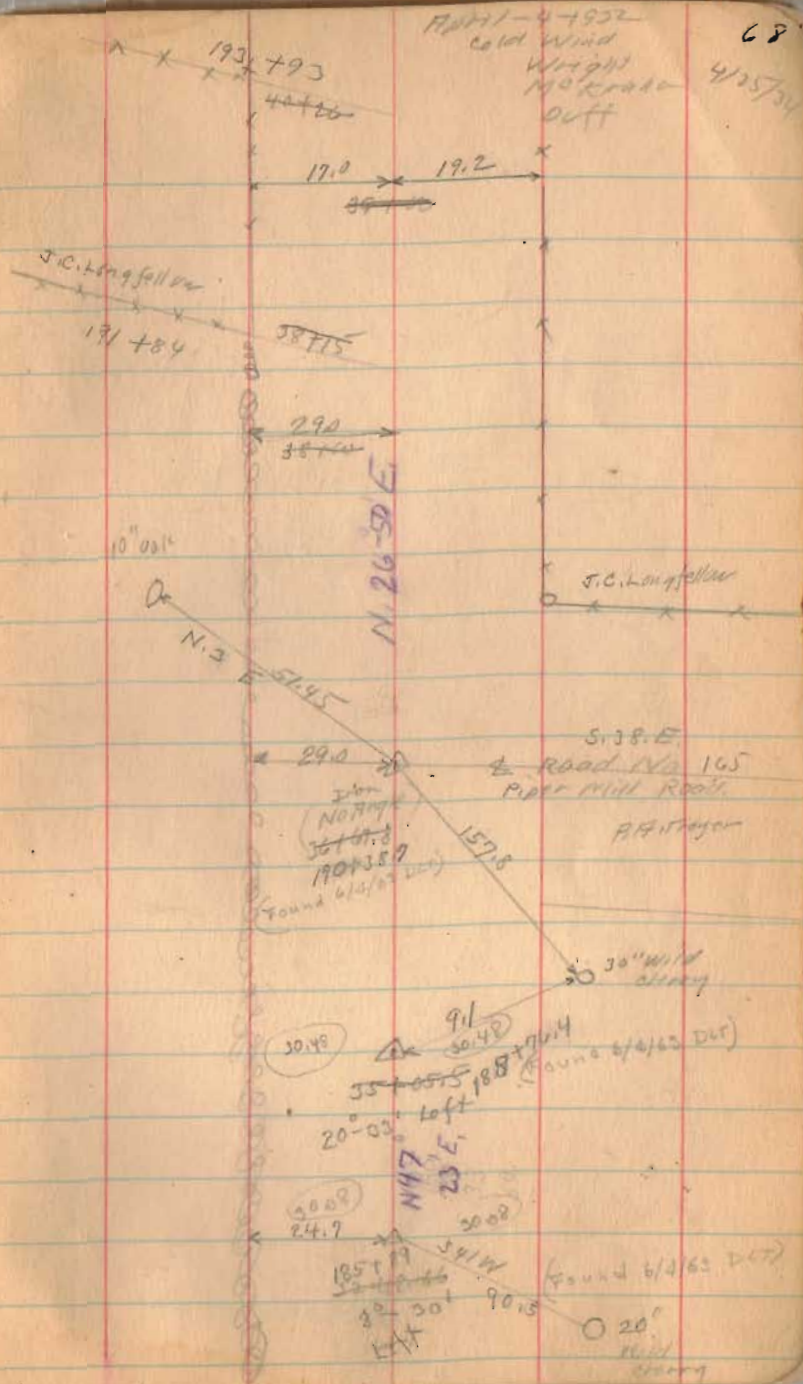 68
April-4-1932
Cold Wind
Wright
Duff
4/25/34
193+93
40+26
17.0 19.2
J.C. Longfellow
191+84
38+15
29.0
N. 26°-50' E.
10" oak
J.C. Longfellow
N. 3 E 51.45
29.0
S. 38. E.
℄ Road No 165
Piper Mill Road.
Iron
(No Angle)
36+69.8
190+38.7
(Found 6/4/63 DLT)
157.8
30" Wild
cherry
9.1
30.48
30.48
35+05.5
188+76.4
(Found 6/4/63 DLT)
20°-33' Left
N47°
23' E.
30.08
24.7
30.08
S41W
185+19
(Found 6/4/63 DLT)
3°-30'
90.5
20"
Wild
cherry